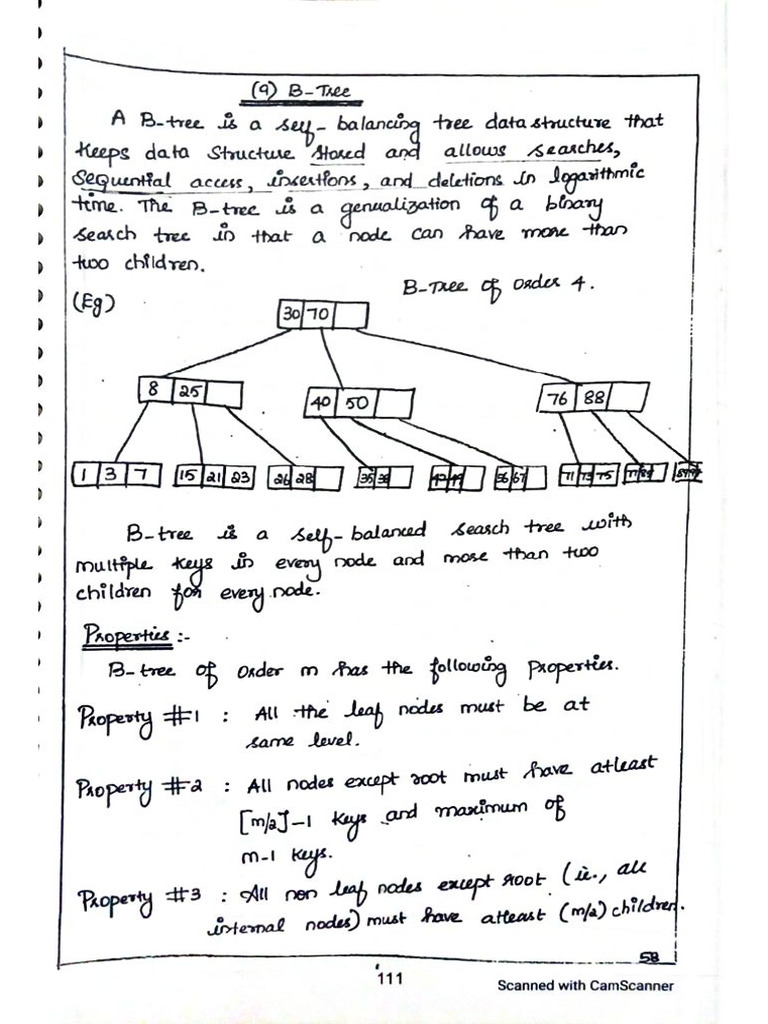 (9) B-Tree
A B-tree is a self-balancing tree data structure that
keeps data structure stored and allows searches,
sequential access, insertions, and deletions in logarithmic
time. The B-tree is a genualization of a binary
search tree in that a node can have more than
two children.
B-Tree of order 4.
(Eg)
30 70
8 25
40 50
76 88
1 3 7
15 21 23
26 28
35 38
56 67
71 73 75
77 86
B-tree is a self-balanced search tree with
multiple keys in every node and more than two
children for every node.
Properties :-
B-tree of order m has the following properties.
Property #1 : All the leaf nodes must be at
same level.
Property #2 : All nodes except root must have atleast
[m/2]-1 keys and maximum of
m-1 keys.
Property #3 : All non leaf nodes except root (i.e., all
internal nodes) must have atleast (m/2) children.
58
111
Scanned with CamScanner